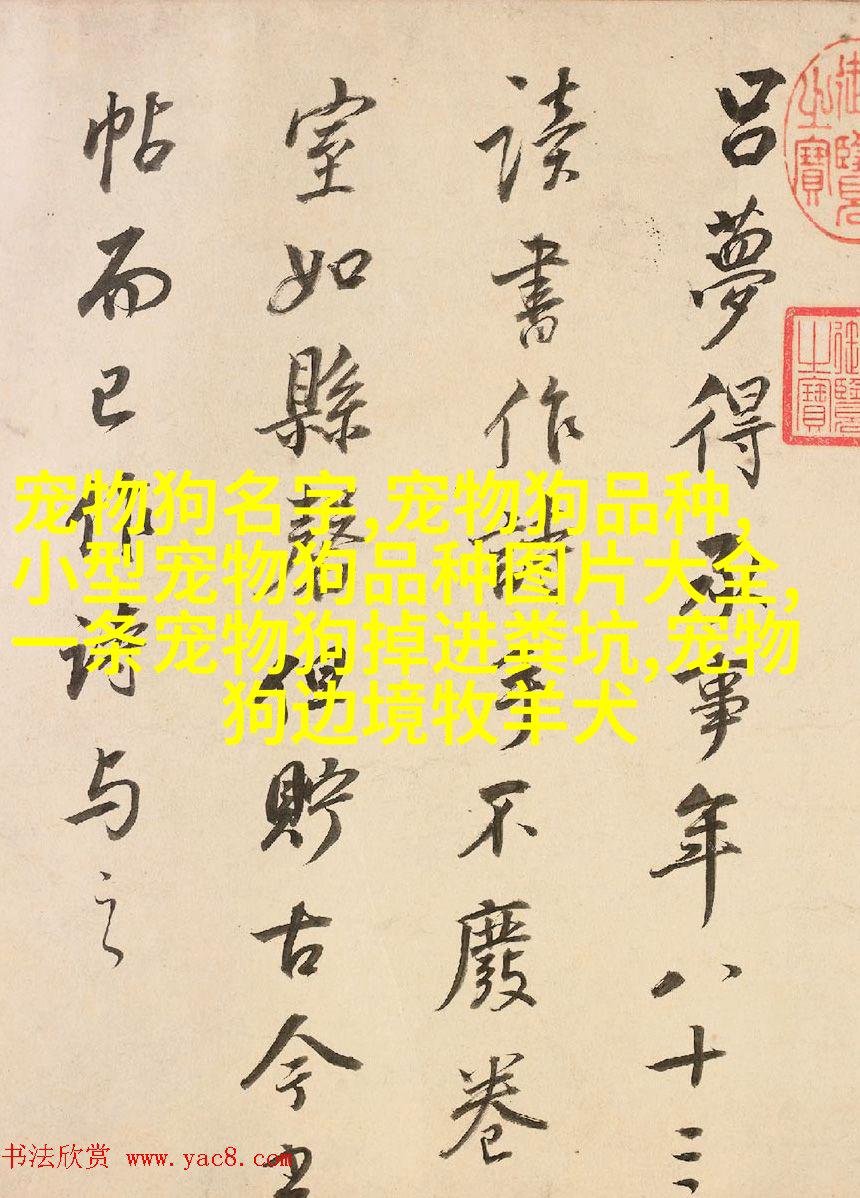 御覽之寶
御覽之寶
呂夢得承事年八十三
讀書作詩手不廢卷
室如縣磬但貯古今
帖而已作詩与之
宠物狗名字,宠物狗品种,
小型宠物狗品种图片大全,
一条宠物狗掉进粪坑,宠物
狗边境牧羊犬
书法欣赏 www.yac8.com